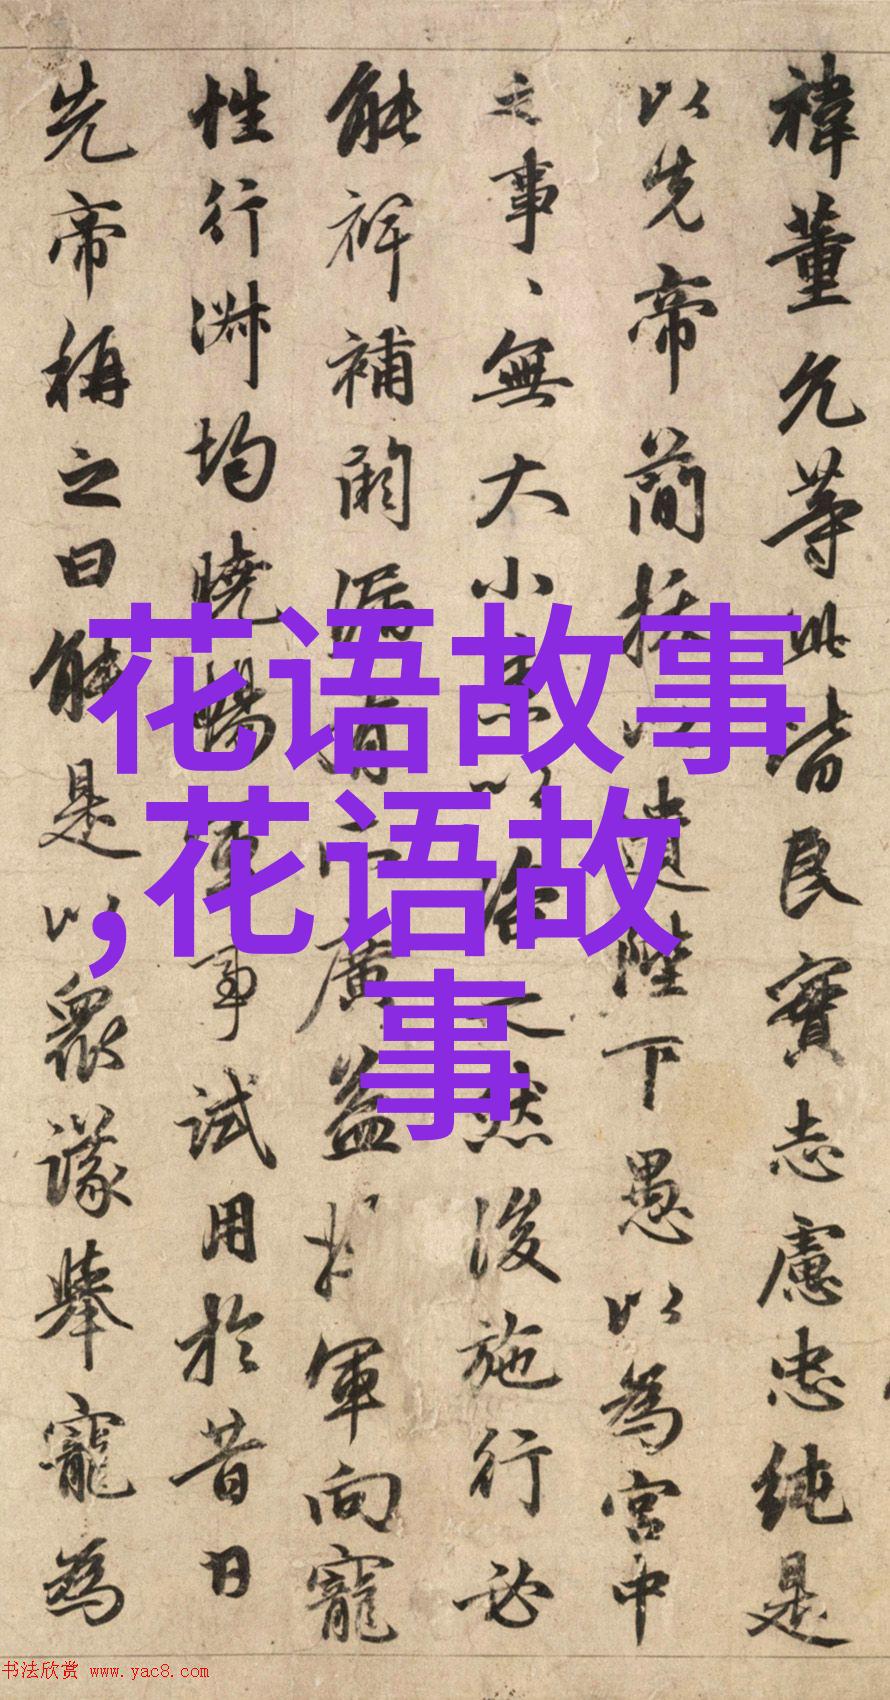 禕董允等此皆良實志慮忠純是
以先帝簡拔以遺陛下愚以為宮中
之事、無大小悉以咨之然後施行必
能裨補闕漏有所廣益將軍向寵
性行淑均曉暢軍事試用於昔日
先帝稱之曰能是以衆議舉寵為
花语故事
,花语故
事
书法欣赏 www.yac8.com